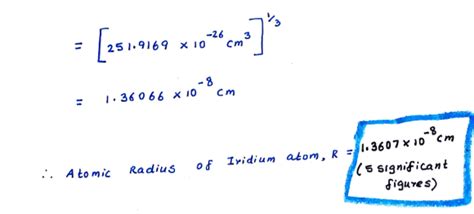 = [251.9169 × 10⁻²⁶ cm³]^1/3
= 1.36066 × 10⁻⁸ cm
∴ Atomic Radius of Iridium atom, R = 1.3607 × 10⁻⁸ cm
(5 significant
figures)